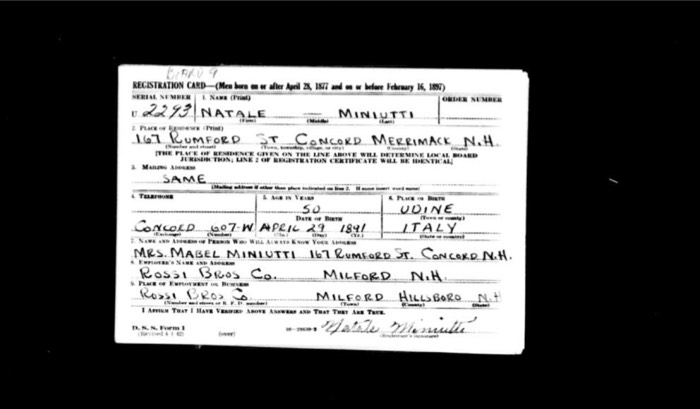 BOARD 9
REGISTRATION CARD—(Men born on or after April 28, 1877 and on or before February 16, 1897)
SERIAL NUMBER 1. NAME (Print) ORDER NUMBER
U 2293 NATALE — MINIUTTI
(First) (Middle) (Last)
2. PLACE OF RESIDENCE (Print)
167 RUMFORD ST CONCORD MERRIMACK N.H.
(Number and street) (Town, township, village, or city) (County) (State)
[THE PLACE OF RESIDENCE GIVEN ON THE LINE ABOVE WILL DETERMINE LOCAL BOARD
JURISDICTION; LINE 2 OF REGISTRATION CERTIFICATE WILL BE IDENTICAL]
3. MAILING ADDRESS
SAME
[Mailing address if other than place indicated on line 2. If same insert word same]
4. TELEPHONE 5. AGE IN YEARS 6. PLACE OF BIRTH
50 UDINE
DATE OF BIRTH (Town or county)
CONCORD 607-W APRIL 29 1891 ITALY
(Exchange) (Number) (Mo.) (Day) (Yr.) (State or country)
7. NAME AND ADDRESS OF PERSON WHO WILL ALWAYS KNOW YOUR ADDRESS
MRS. MABEL MINIUTTI 167 RUMFORD ST. CONCORD N.H.
8. EMPLOYER'S NAME AND ADDRESS
ROSSI BROS CO. MILFORD N.H.
9. PLACE OF EMPLOYMENT OR BUSINESS
ROSSI BROS CO. MILFORD HILLSBORO N.H
(Number and street or R. F. D. number) (Town) (County) (State)
I AFFIRM THAT I HAVE VERIFIED ABOVE ANSWERS AND THAT THEY ARE TRUE.
D. S. S. Form 1 Natale Miniutti
(Revised 4-1-42) (over) (Registrant's signature)